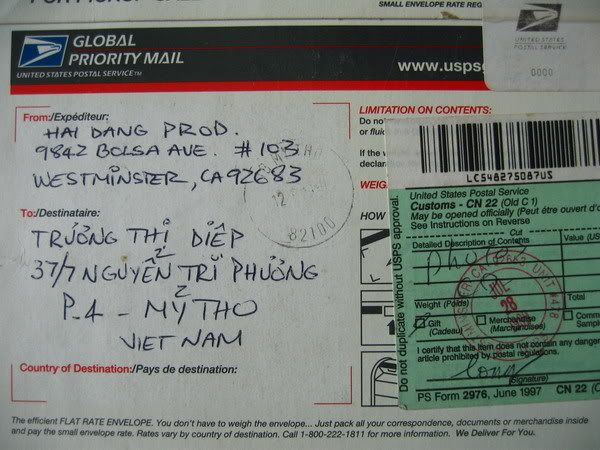 SMALL ENVELOPE RATE REQ
UNITED STATES
POSTAL SERVICE
0000
GLOBAL
PRIORITY MAIL
UNITED STATES POSTAL SERVICE™
www.usps
From:/Expéditeur:
HAI DANG PROD.
9842 BOLSA AVE. #103
WESTMINSTER, CA 92683
82700
To:/Destinataire:
TRƯƠNG THỊ DIỆP
37/7 NGUYỄN TRI PHƯƠNG
P.4 - MỸ THO
VIET NAM
Country of Destination:/Pays de destination:
LIMITATION ON CONTENTS:
Do no
or fluid
If the
WEIG
HOW
LC548275087US
Do not duplicate without USPS approval.
United States Postal Service
Customs - CN 22 (Old C 1)
May be opened officially (Peut être ouvert d'o
See Instructions on Reverse
Cut
Detailed Description of Contents
Value (US
photos
Weight (Poids)
Total
Gift
(Cadeau)
Merchandise
(Marchandises)
Comm
Samp
28
UNIT #418
I certify that this item does not contain any dange
article prohibited by postal regulations.
(Signature)
Cut
PS Form 2976, June 1997
CN 22 (
The efficient FLAT RATE ENVELOPE. You don't have to weigh the envelope... Just pack all your correspondence, documents or merchandise inside
and pay the small envelope rate. Rates vary by country of destination. Call 1-800-222-1811 for more information. We Deliver For You.